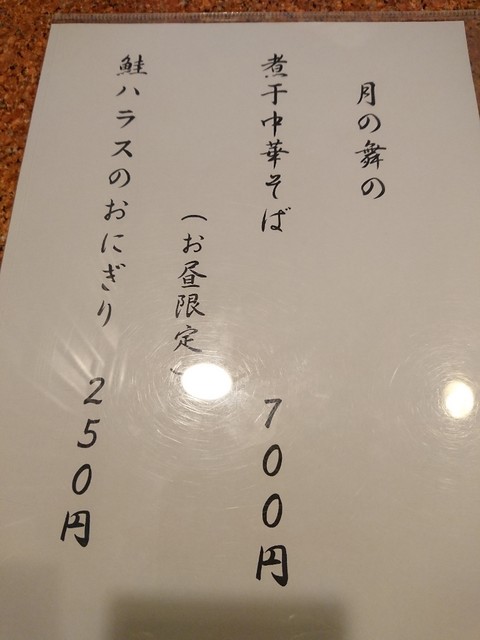 月の舞の
煮干中華そば　700円
（お昼限定）
鮭ハラスのおにぎり　250円